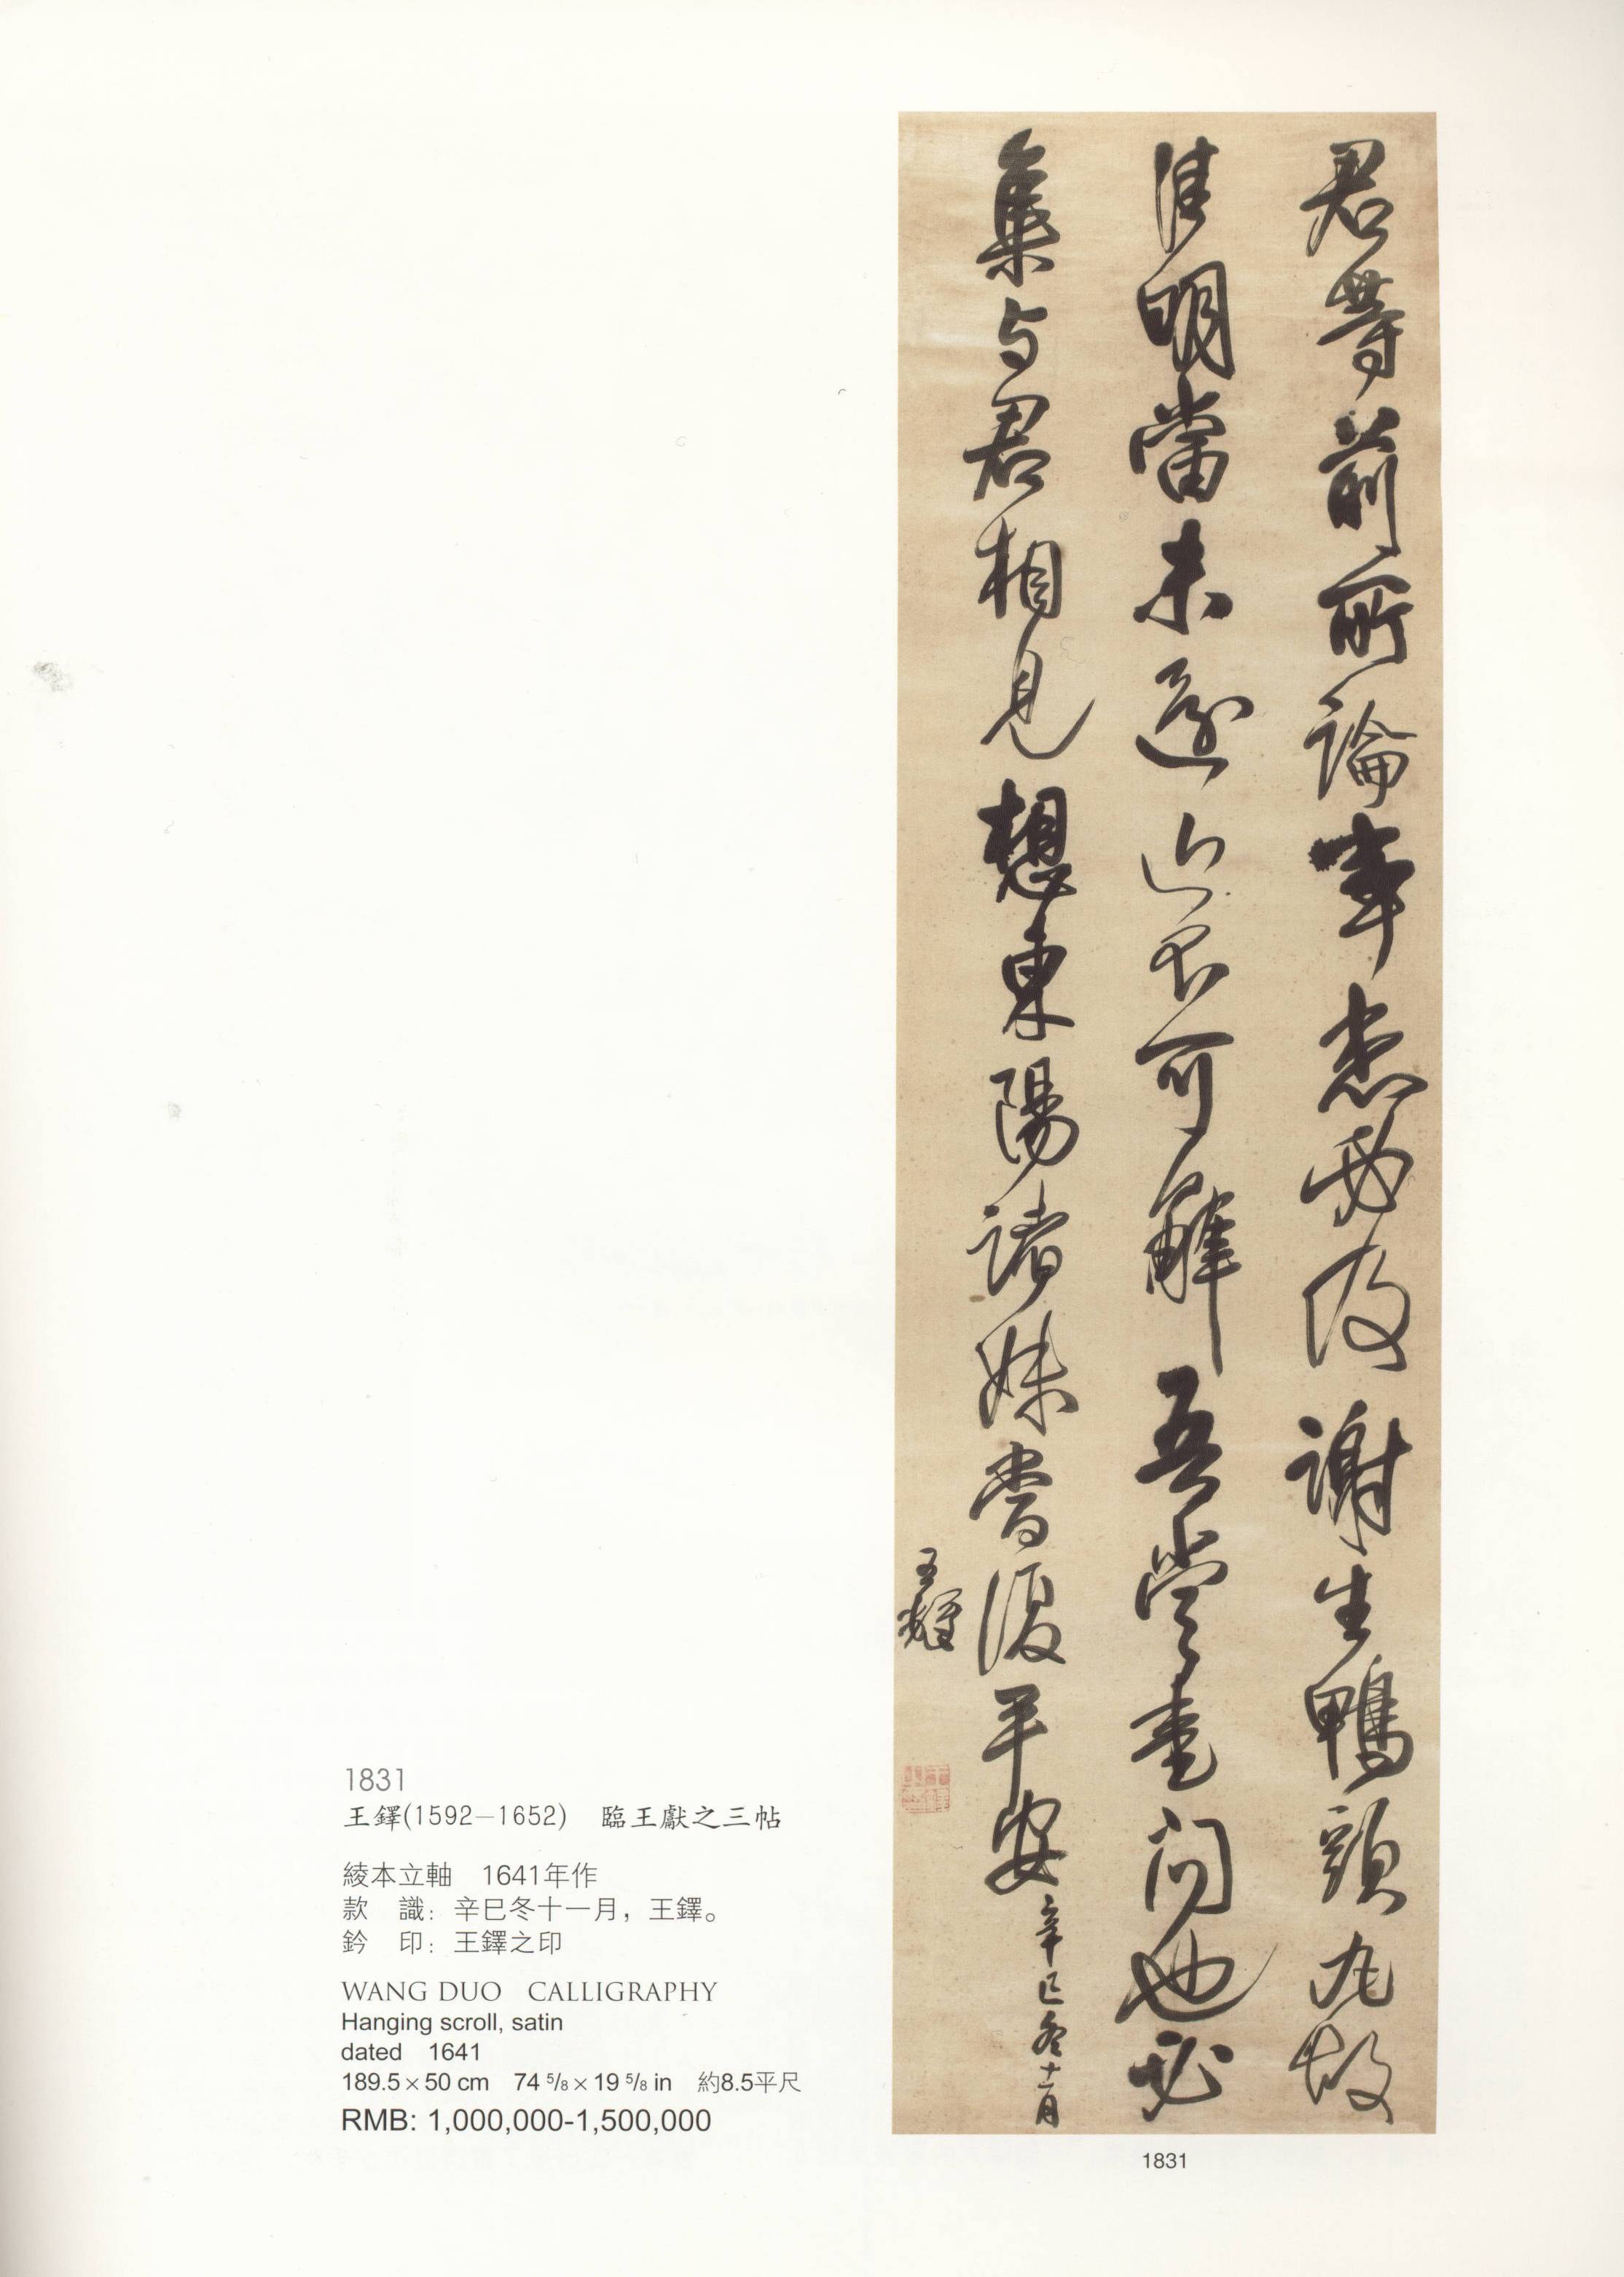 君等前所論事悉及謝生鴨頭丸故
佳明當未不可解吾當書問也必
集与君相見想東陽諸妹當復平安 辛巳冬十一月
王鐸
王鐸之印
1831
王鐸(1592—1652) 臨王獻之三帖
綾本立軸 1641年作
款 識：辛巳冬十一月，王鐸。
鈐 印：王鐸之印
WANG DUO CALLIGRAPHY
Hanging scroll, satin
dated 1641
189.5×50 cm 74 5/8×19 5/8 in 約8.5平尺
RMB: 1,000,000-1,500,000
1831